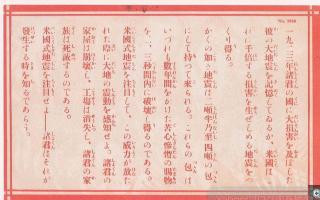 No. 2048
一九二三年諸君の國に大損害を及ぼした
彼の大地震を記憶してゐるか、米國は
これに千倍する損害を生ぜしめる地震を
つくり得る。
かくの如き地震は二噸半乃至四噸の包
にして持つて來られる。これらの包は
いづれも數年間をかけた苦心慘憺の賜物
を二、三秒間内に破壞し得るのである。
米國式地震を注目して、この威力が放た
れた際に大地の震動を感知せよ。諸君の
家屋は崩壞し、工場は消失し、諸君の家
族は死滅するのである。
米國式地震を注目せよ――諸君はそれが
發生する時を知るであらう。